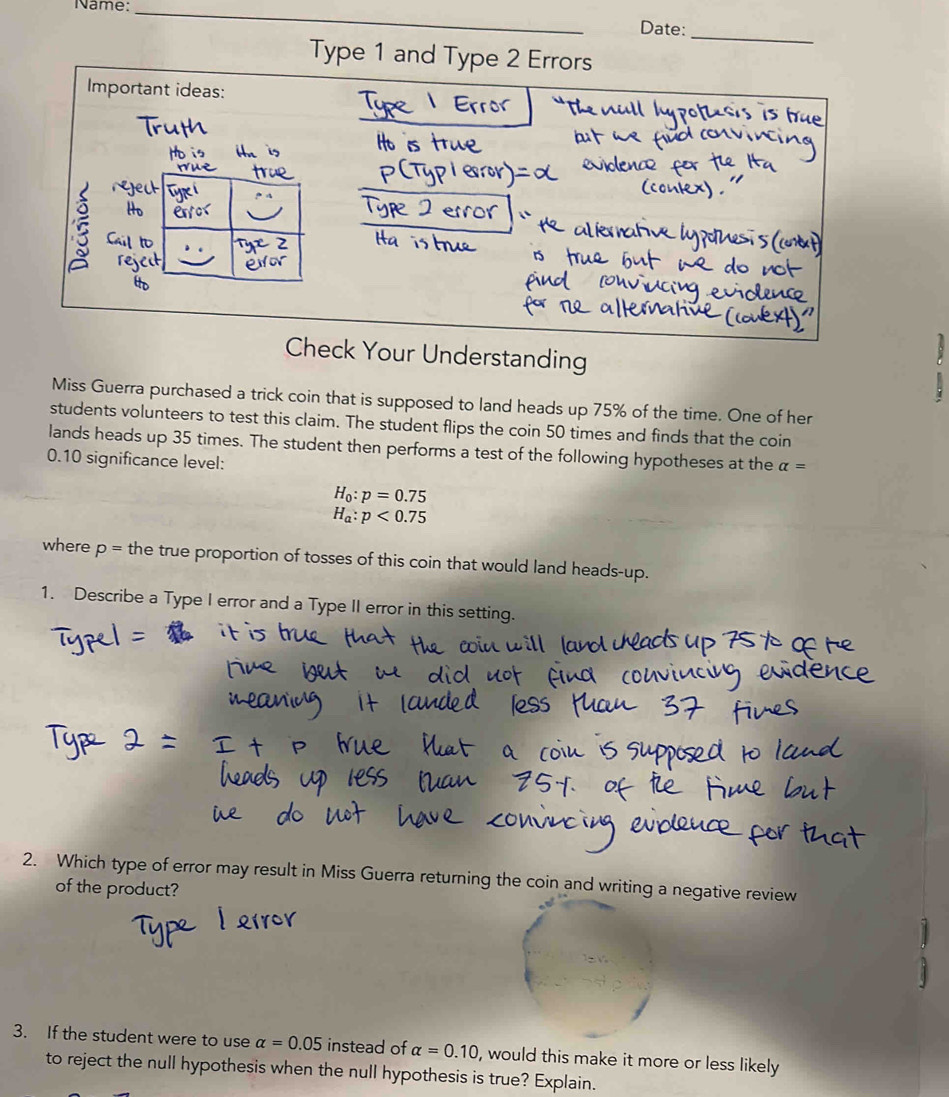 Name:
Date:
Type 1 and Type 2 Errors
Important ideas:
Truth
Ho is true
Ha is true
Decision
reject Ho
Type 1 error
fail to reject Ho
Type 2 error
Type 1 Error
Ho is true
P(Typ 1 error) = α
"The null hypothesis is true
but we find convincing
evidence for the Ha
(contex)."
Type 2 error
Ha is true
"the alternative hypothesis (context)
is true but we do not
find convincing evidence
for the alternative (context)"
Check Your Understanding
Miss Guerra purchased a trick coin that is supposed to land heads up 75% of the time. One of her
students volunteers to test this claim. The student flips the coin 50 times and finds that the coin
lands heads up 35 times. The student then performs a test of the following hypotheses at the α =
0.10 significance level:
H₀: p = 0.75
Hₐ: p < 0.75
where p = the true proportion of tosses of this coin that would land heads-up.
1. Describe a Type I error and a Type II error in this setting.
Type 1 = it is true that the coin will land heads up 75% of the
time but we did not find convincing evidence
meaning it landed less than 37 times
Type 2 = It is true that a coin is supposed to land
heads up less than 75%. of the time but
we do not have convincing evidence for that
2. Which type of error may result in Miss Guerra returning the coin and writing a negative review
of the product?
Type 1 error
3. If the student were to use α = 0.05 instead of α = 0.10, would this make it more or less likely
to reject the null hypothesis when the null hypothesis is true? Explain.